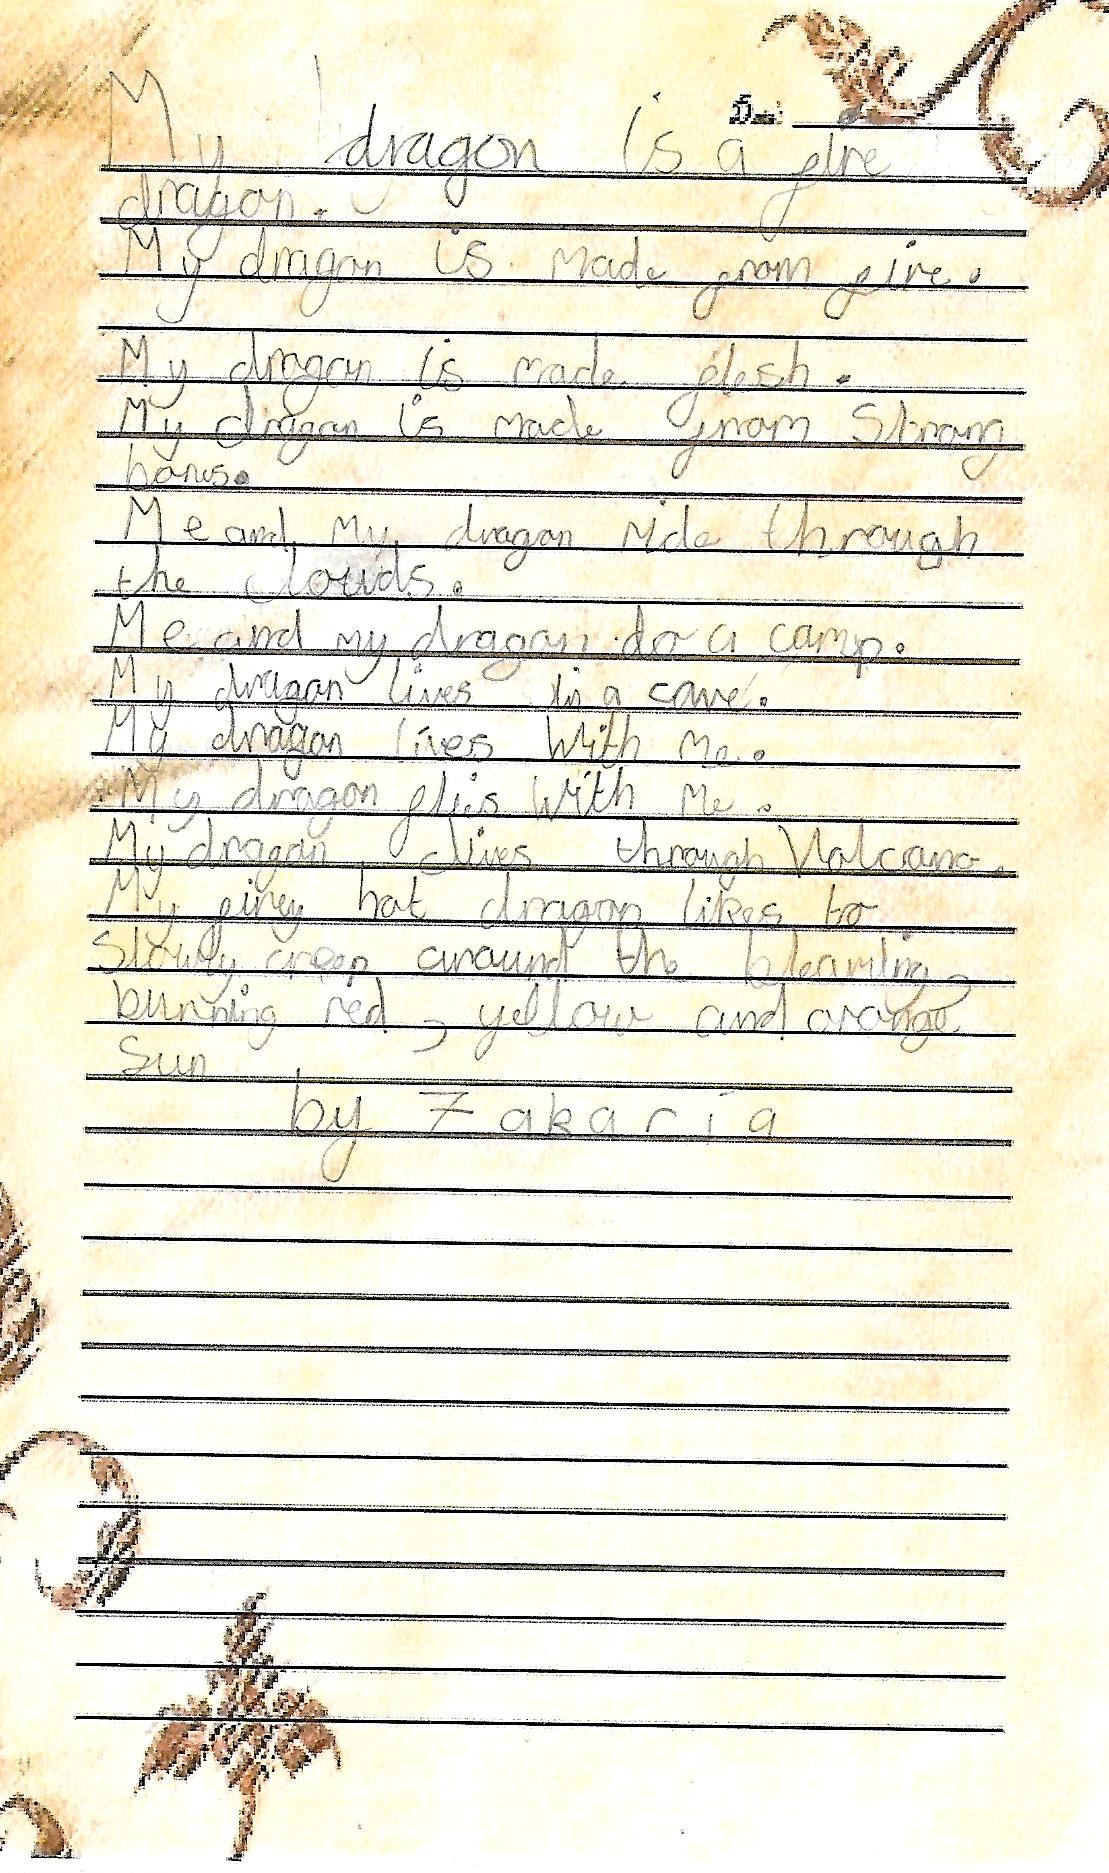 My dragon is a fire
dragon.
My dragon is made from fire.
My dragon is made flesh.
My dragon is made from Strong
bones.
Me and My dragon ride through
the clouds.
Me and my dragon do a camp.
My dragon lives in a cave.
My dragon lives With Me.
My dragon flies With Me.
My dragon dives through Volcano.
My firey hot dragon likes to
Slowly creep around the
burning red, yellow and orange
Sun
by Zakaria